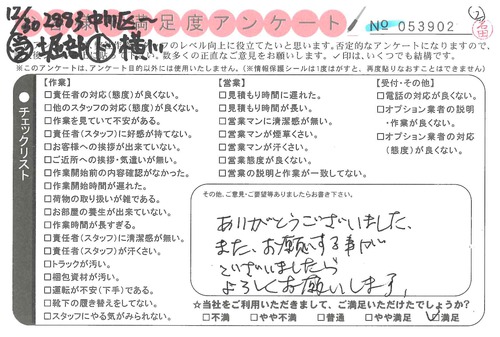 12/30 2993 中川区
満足度アンケート
№ 053902
のレベル向上に役立てたいと思います。否定的なアンケートになりますので、
数多くの正直なご意見をお願いします。✓印は、いくつでも結構です。
※このアンケートは、アンケート目的以外には使用いたしません。(※情報保護シールは1度はがすと、再度貼りなおすことはできません)
チェックリスト
【作業】
□責任者の対応(態度)が良くない。
□他のスタッフの対応(態度)が良くない。
□作業を見ていて不安がある。
□責任者(スタッフ)に好感が持てない。
□お客様への挨拶が出来ていない。
□ご近所への挨拶・気遣いが無い。
□作業開始前の内容確認がなかった。
□作業開始時間が遅れた。
□荷物の取り扱いが雑である。
□お部屋の養生が出来ていない。
□作業時間が長すぎる。
□責任者(スタッフ)に清潔感が無い。
□責任者(スタッフ)が汗くさい。
□トラックが汚い。
□梱包資材が汚い。
□運転が不安(下手)である。
□靴下の履き替えをしてない。
□スタッフにやる気がみられない。
【営業】
□見積もり時間に遅れた。
□見積もり時間が長い。
□営業マンに清潔感が無い。
□営業マンが煙草くさい。
□営業マンが汗くさい。
□営業態度が良くない。
□営業の説明と作業が一致してない。
【受付・その他】
□電話の対応が良くない。
□オプション業者の説明
・作業が良くない。
□オプション業者の対応
(態度)が良くない。
その他、ご意見・ご要望等ありましたらお書き下さい。
ありがとうございました。
また、お願いする事が
ございましたら
よろしくお願いします。
☆当社をご利用いただきまして、ご満足いただけたでしょうか?
□不満 □やや不満 □普通 □やや満足 ☑満足